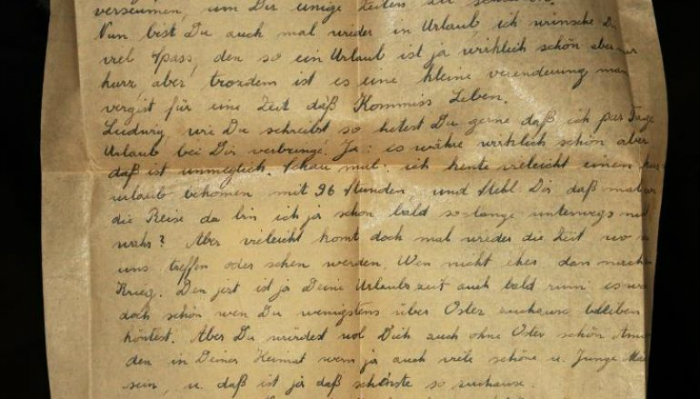 verseumen, um Dir einige Zeilen zu schreiben.
Nun bist Du auch mal wieder in Urlaub ich wünsche Dir
viel Spass, den so ein Urlaub ist ja wirklich schön aber nur
kurz, aber trozdem ist es eine kleine verenderung man
vergist für eine Zeit daß Kommiss Leben.
Ludwig, wie Du schreibst so hetest Du gerne daß ich par Tage
Urlaub bei Dir verbringe. Ja: es währe wirklich schön aber
daß ist unmeglich. Schau mal: ich kente vieleicht einen kurz
urlaub bekomen mit 96 Stunden und Stehl Dir daß mal vor
die Reise da bin ich ja schon bald so lange unterwegs nicht
wahr? Aber vieleicht komt doch mal wieder die Zeit wo wir
uns treffen oder sehen werden. Wen nicht eher dan nach
Krieg. Den jezt ist ja Deine Urlaubs zeit auch bald rum: es
doch schön wen Du wenigstens über Oster zuhause bleiben
köntest. Aber Du würdest wol Dich auch ohne Oster schön
den in Deiner Heimat wern ja auch viele schöne u. Junge
sein, u. daß ist ja daß schönste so zuhause.